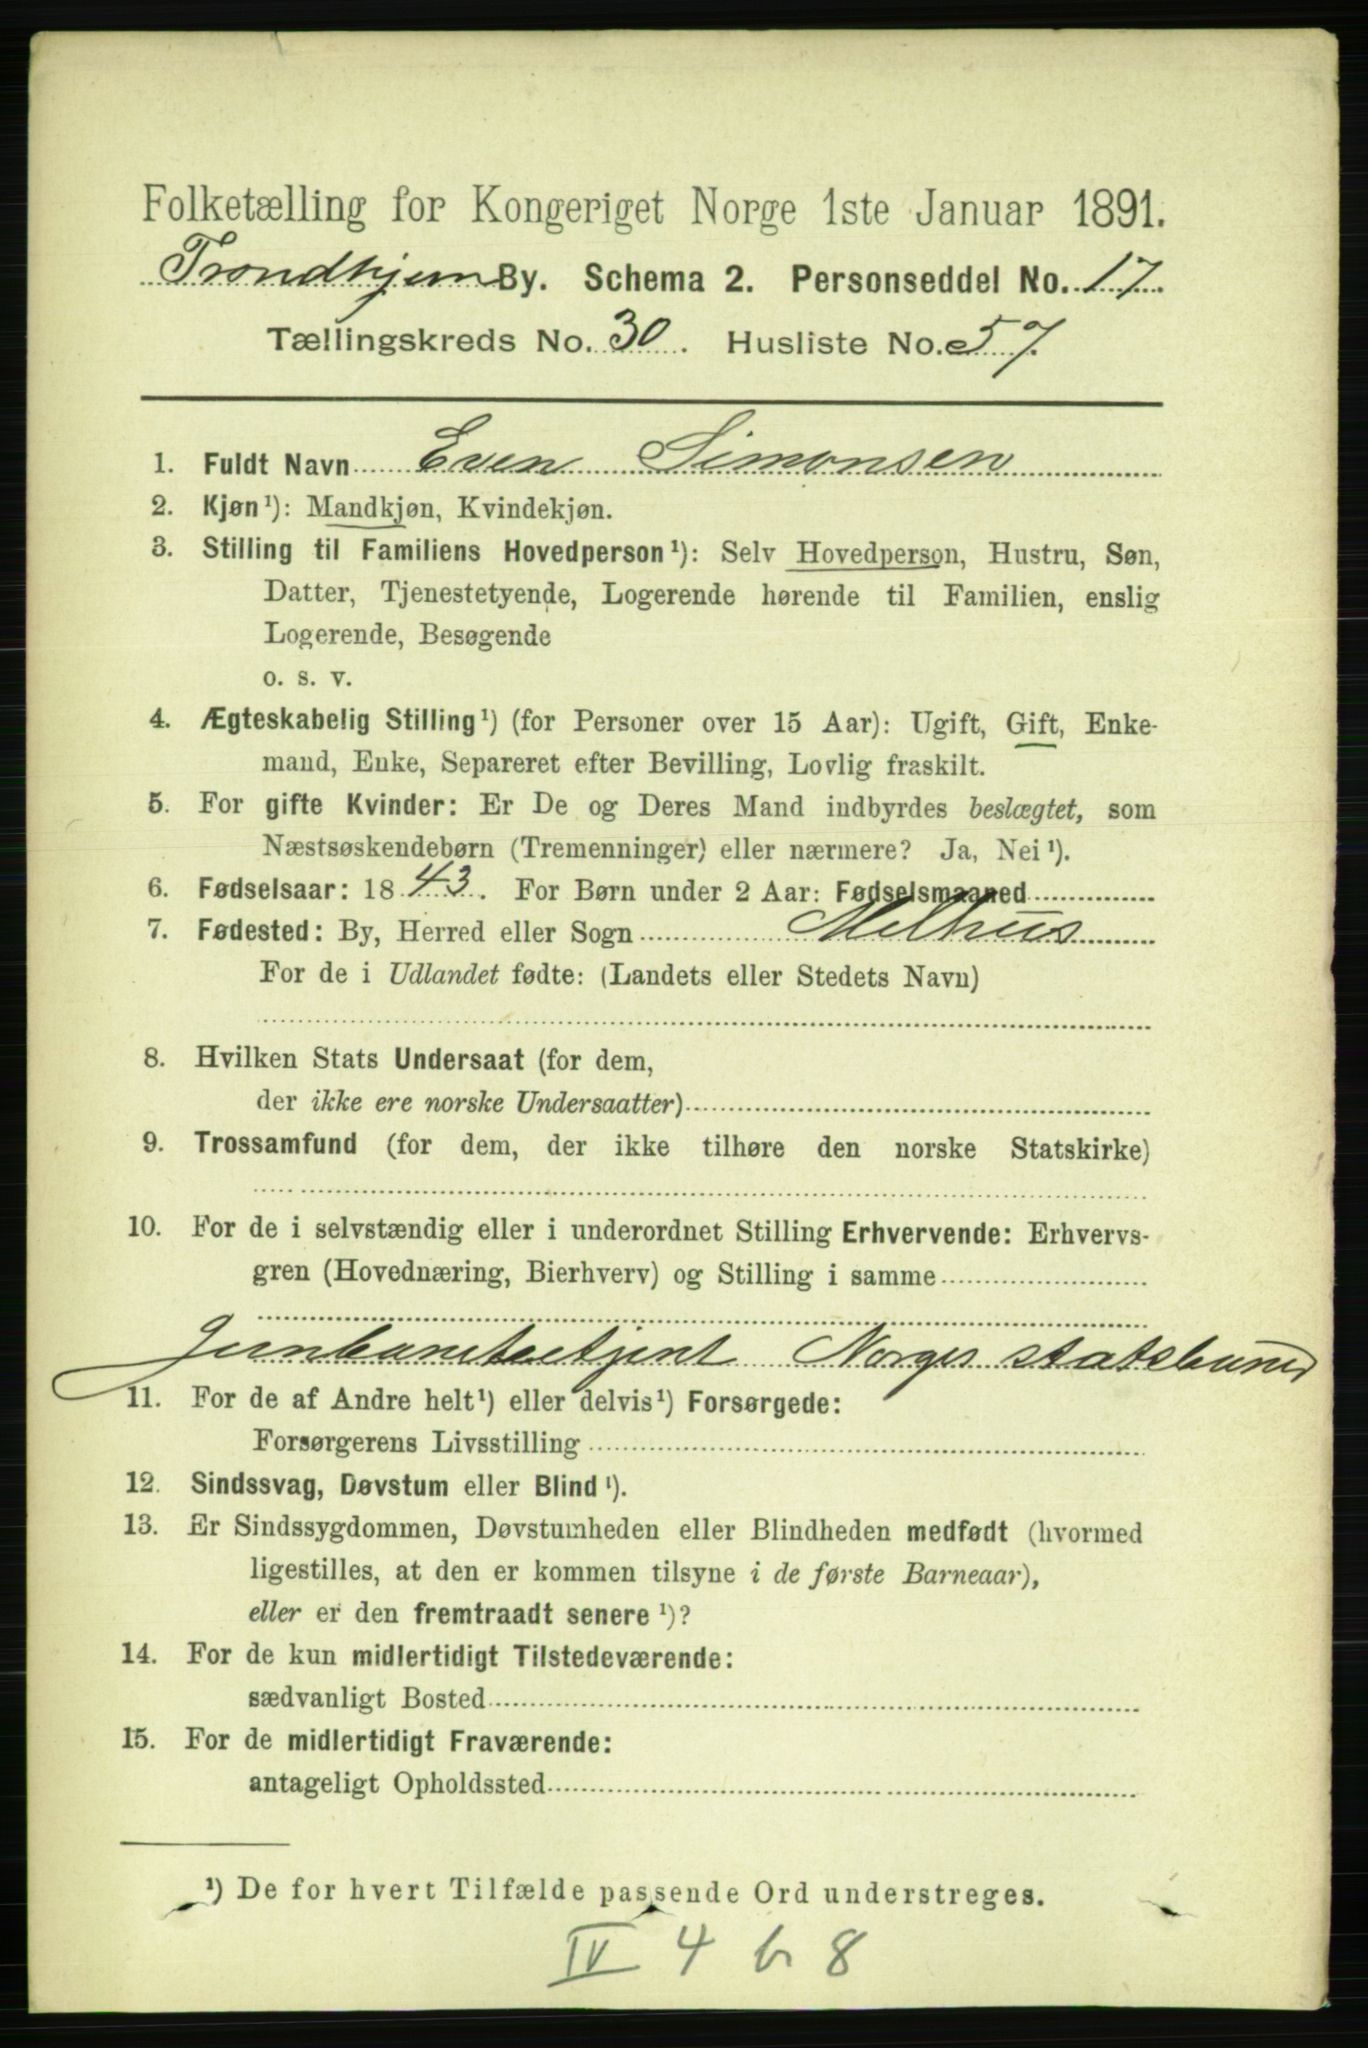 Folketælling for Kongeriget Norge 1ste Januar 1891.
Trondhjem By. Schema 2. Personseddel No. 17.
Tællingskreds No. 30. Husliste No. 57.
1. Fuldt Navn Even Simonsen
2. Kjøn¹): Mandkjøn, Kvindekjøn.
3. Stilling til Familiens Hovedperson¹): Selv Hovedperson, Hustru, Søn,
Datter, Tjenestetyende, Logerende hørende til Familien, enslig
Logerende, Besøgende
o. s. v.
4. Ægteskabelig Stilling¹) (for Personer over 15 Aar): Ugift, Gift, Enke-
mand, Enke, Separeret efter Bevilling, Lovlig fraskilt.
5. For gifte Kvinder: Er De og Deres Mand indbyrdes beslægtet, som
Næstsøskendebørn (Tremenninger) eller nærmere? Ja, Nei¹).
6. Fødselsaar: 1843. For Børn under 2 Aar: Fødselsmaaned
7. Fødested: By, Herred eller Sogn Melhus
For de i Udlandet fødte: (Landets eller Stedets Navn)
8. Hvilken Stats Undersaat (for dem,
der ikke ere norske Undersaatter)
9. Trossamfund (for dem, der ikke tilhøre den norske Statskirke)
10. For de i selvstændig eller i underordnet Stilling Erhvervende: Erhvervs-
gren (Hovednæring, Bierhverv) og Stilling i samme
Norges statsbaner
11. For de af Andre helt¹) eller delvis¹) Forsørgede:
Forsørgerens Livsstilling
12. Sindssvag, Døvstum eller Blind¹).
13. Er Sindssygdommen, Døvstumheden eller Blindheden medfødt (hvormed
ligestilles, at den er kommen tilsyne i de første Barneaar),
eller er den fremtraadt senere¹)?
14. For de kun midlertidigt Tilstedeværende:
sædvanligt Bosted
15. For de midlertidigt Fraværende:
antageligt Opholdssted
¹) De for hvert Tilfælde passende Ord understreges.
IV 4 b 8